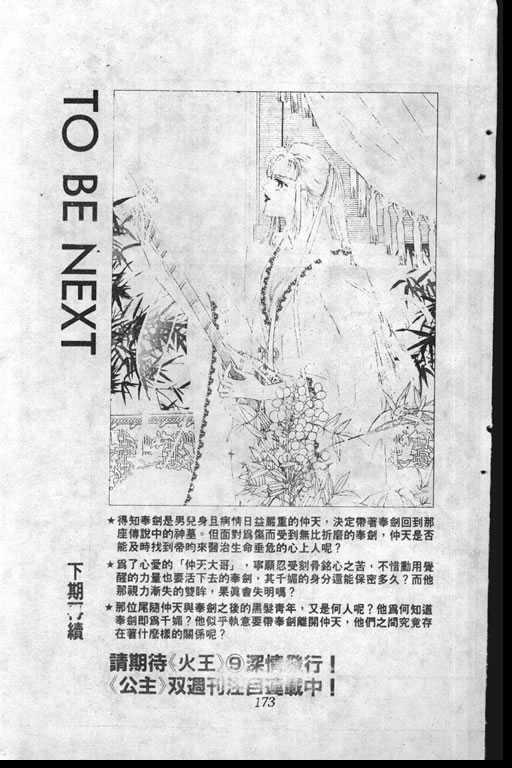 TO BE NEXT
★得知奉劍是男兒身且病情日益嚴重的仲天，決定帶著奉劍回到那
座傳說中的神墓。但面對爲傷而受到無比折磨的奉劍，仲天是否
能及時找到帝昀來醫治生命垂危的心上人呢？
★爲了心愛的「仲天大哥」，寧願忍受刻骨銘心之苦，不惜動用覺
醒的力量也要活下去的奉劍，其千媚的身分還能保密多久？而他
那視力漸失的雙眸，果眞會失明嗎？
★那位尾隨仲天與奉劍之後的黑髮青年，又是何人呢？他爲何知道
奉劍即爲千媚？他似乎執意要帶奉劍離開仲天，他們之間究竟存
在著什麼樣的關係呢？
下期 續
請期待《火王》⑨深情發行！
《公主》双週刊注目連載中！
173